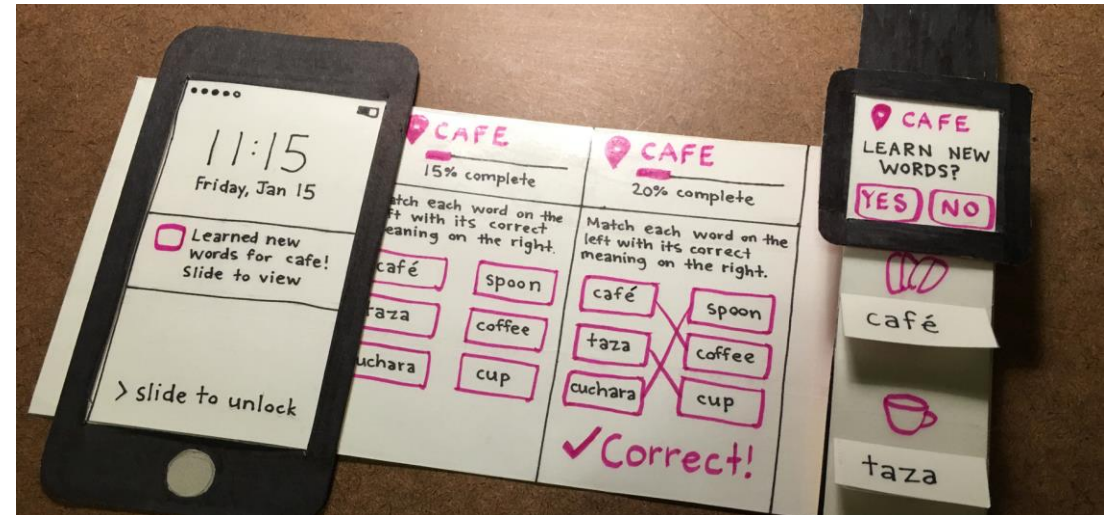 11:15
Friday, Jan 15
Learned new
words for cafe!
Slide to view
> slide to unlock
CAFE
15% complete
atch each word on the
ft with its correct
eaning on the right.
café
spoon
aza
coffee
uchara
cup
CAFE
20% complete
Match each word on the
left with its correct
meaning on the right.
café
spoon
taza
coffee
cuchara
cup
✓Correct!
CAFE
LEARN NEW
WORDS?
YES NO
café
taza